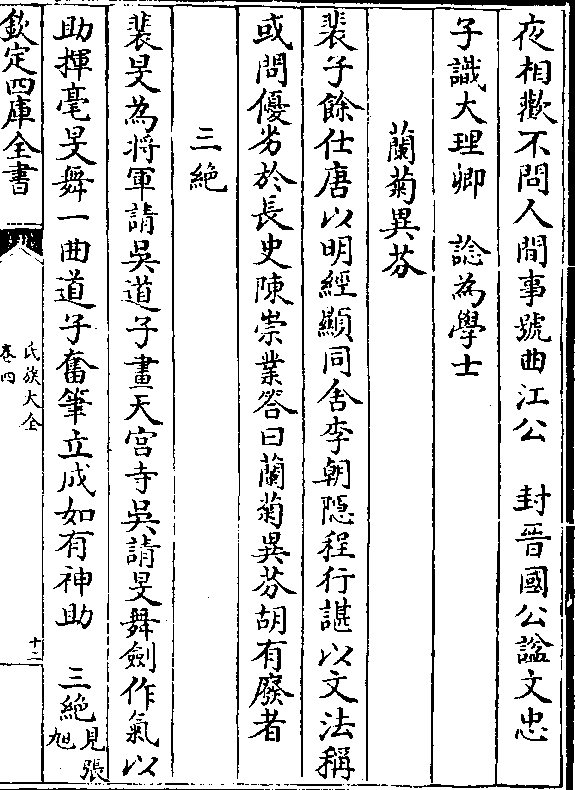 夜相歡不問人間事號曲江公　封晉國公諡文忠
子識大理卿　諗為學士
蘭菊異芬
裴子餘仕唐以明經顯同舍李朝隠程行諶以文法稱
或問優劣於長史陳崇業答曰蘭菊異芬胡有廢者
三絶
裴旻為將軍請吳道子畫天宮寺吳請旻舞劍作氣以
助揮毫旻舞一曲道子奮筆立成如有神助　三絶見張旭
欽定四庫全書
氏族大全
卷四
十二